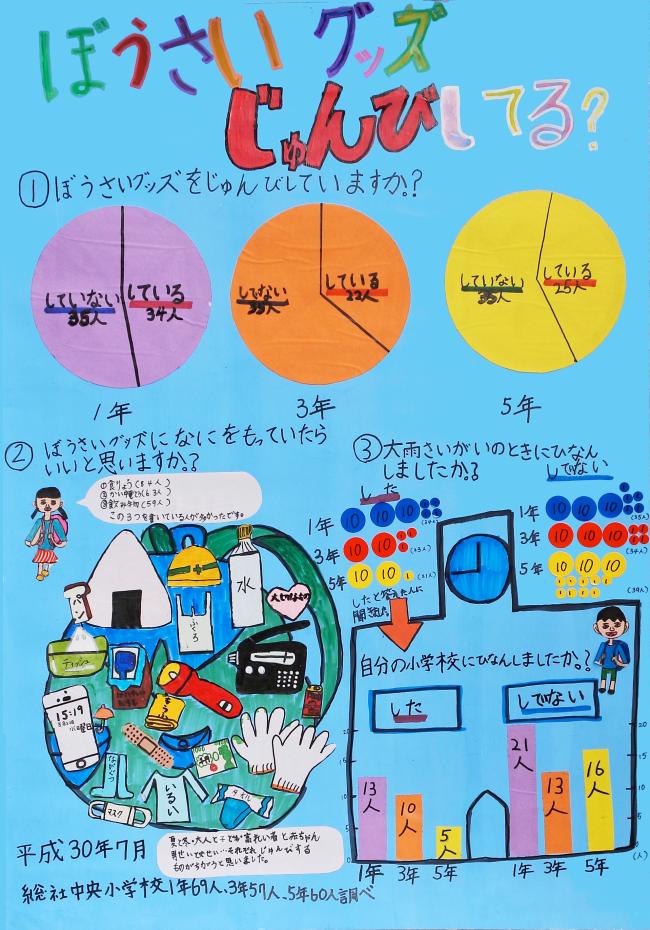 ぼうさい グッズ
じゅんびしてる?
① ぼうさいグッズをじゅんびしていますか?
していない
35人
している
34人
1年
していない
35人
している
22人
3年
していない
35人
している
25人
5年
② ぼうさいグッズになにをもっていたら
いいと思いますか?
①食りょう(84人)
②かい中電とう(63人)
③飲み物(59人)
この3つを書いている人が多かったです。
水
パン
ふくろ
ティッシュ
15:19
いるい
タオル
マスク
③ 大雨さいがいのときにひなん
しましたか?
した
1年 10 10 10
3年 10 10
(23人)
5年 10 10
(21人)
していない
1年 10 10 10
(35人)
3年 10 10 10
(34人)
5年 10 10 10
(39人)
したと答えた人に
聞きました
自分の小学校にひなんしましたか?
した
していない
20
15
10
5
0
13人
10人
5人
1年 3年 5年
21人
13人
16人
1年 3年 5年
20
15
10
5
0
(人)
夏と冬・大人と子ども・高れい者と赤ちゃん
男せいと女せい…それぞれじゅんびする
ものがちがうと思いました。
平成30年7月
総社中央小学校1年69人、3年57人、5年60人調べ